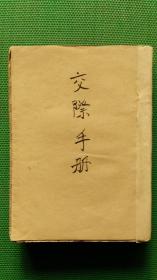 交際手册